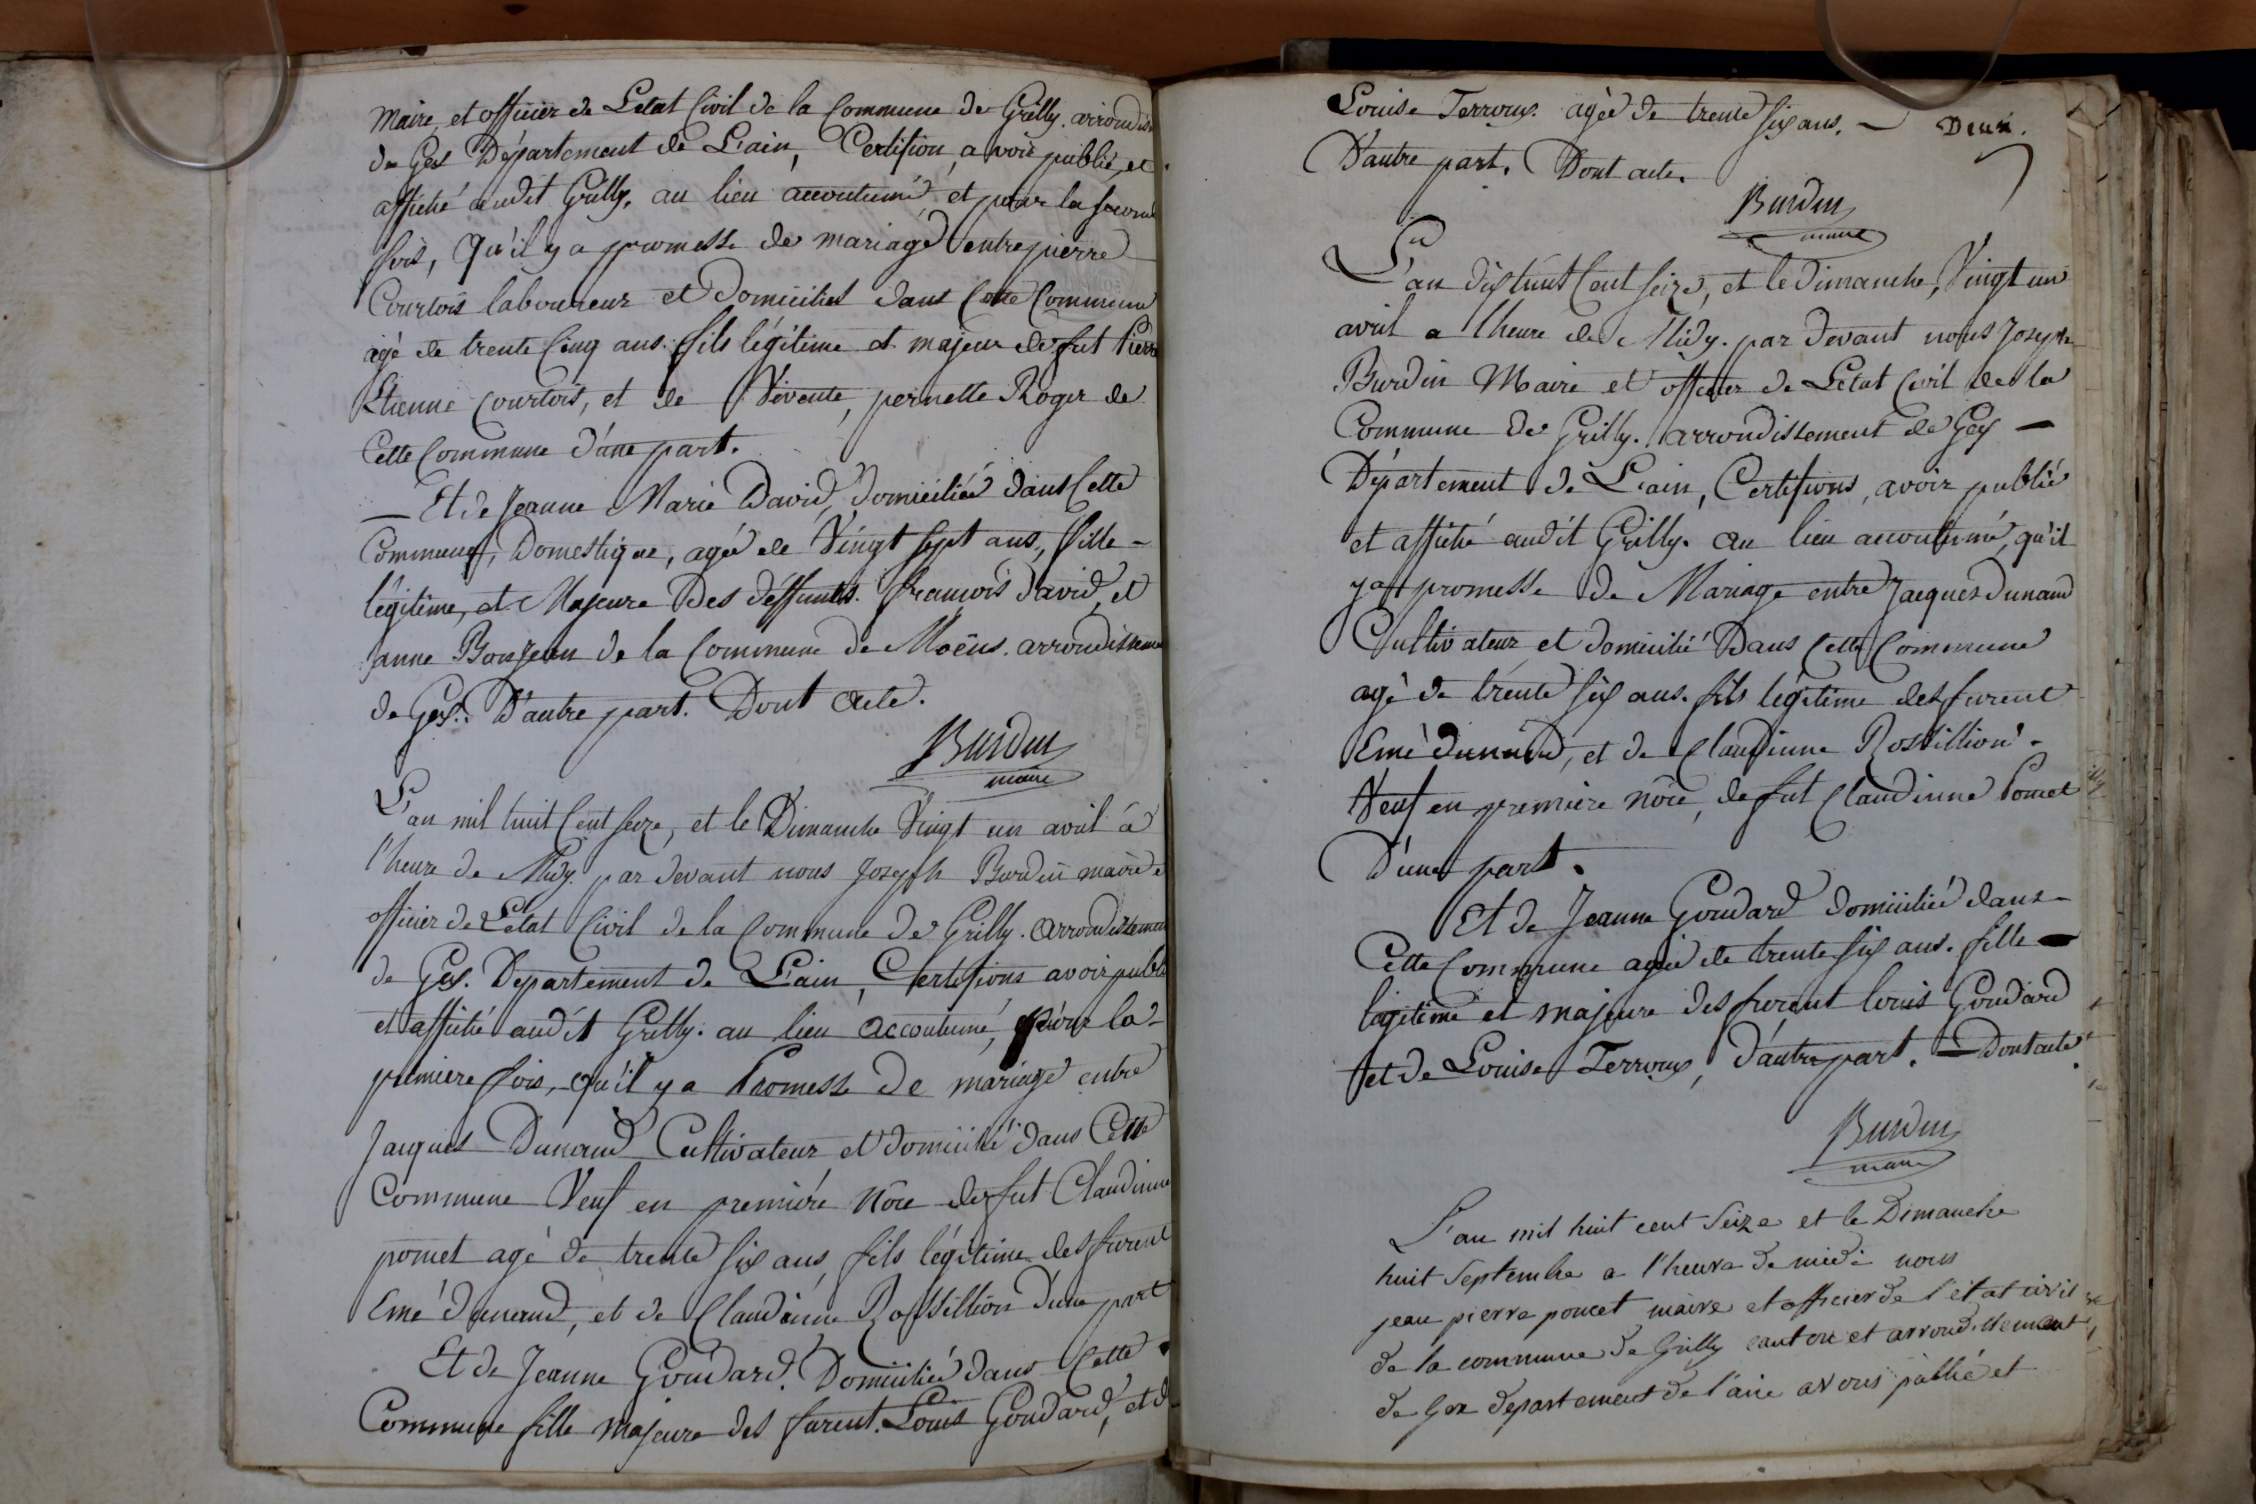 Maire, et officier de L'etat Civil de la Commune de Grilly. arrondiss
de Gex Département de L'ain, Certifion, avoir publié, et
affiché audit Grilly, au lieu accoutumé, et pour la second
fois, Qu'il y a promesse de mariage entre pierre
Courtois laboureur et domicilié dans Cette Commune
agé de trente Cinq ans fils légitime et majeur de fut Pierre
Etienne Courtois, et de Vivente, pernette Roger de
Cette Commune d'une part.
— Et de Jeanne Marie David, domiciliée dans Cette
Commune, Domestique, agée de Vingt sept ans, fille -
légitime, et Majeure Des deffunts. francois David, et
anne Bonjean de la Commune de Moëns. arrondisseme
de Gex. D'autre part. Dont acte.
Burdin
maire
L'an mil huit Cent seize, et le Dimanche Vingt un avril à
l'heure de Midy. par devant nous Joseph Burdin maire &
officier de L'etat Civil de la Commune de Grilly. arrondissemen
de Gex. Departement de L'ain, Certifions avoir publi
et affiché audit Grilly. au lieu accoutumé, pour la -
premiere fois, qu'il y a Promesse de mariage entre
Jacques Dunand Cultivateur et domicilié dans Cette
Commune Veuf en premiére nôce de fut Claudinne
poncet agé de trente six ans, fils légitime des furent
Emé dunand, et de Claudinne Rossillion D'une part
Et de Jeanne Goudard. Domiciliée dans Cette
Commune fille majeure des furent. Louis Goudard, et d
Louise Terroux. agée de trente six ans. — Deux.
D'autre part. Dont acte.
Burdin
maire
L'an dix huit Cent seize, et le dimanche, Vingt un
avril a l'heure de Midy. par devant nous Joseph
Burdin Maire et officier de L'etat Civil de la
Commune de Grilly. arrondissement de Gex —
Département de L'ain, Certifions, avoir publié
et affiché audit Grilly. au lieu accoutumé, qu'il
y a promesse de Mariage entre Jacques Dunand
Cultivateur et domicilié Dans Cette Commune
agé de trente six ans. fils légitime des furent
Emé dunand, et de Claudinne Rossillion -
Veuf en premiere nôce, de fut Claudinne Poncet
D'une part.
Et de Jeanne Goudard domiciliée dans -
Cette Commune agée de trente six ans. fille —
légitime et majeure des furent louis Goudard
et de Louise Terroux, D'autre part. — Dont acte
Burdin
maire
L'an mil huit cent seize et le Dimanche
huit Septembre a l'heure de midi nous
jean pierre poncet maire et officier de l'état civil
de la commune de Grilly canton et arrondissement
de Gex departement de l'ain avons publié et